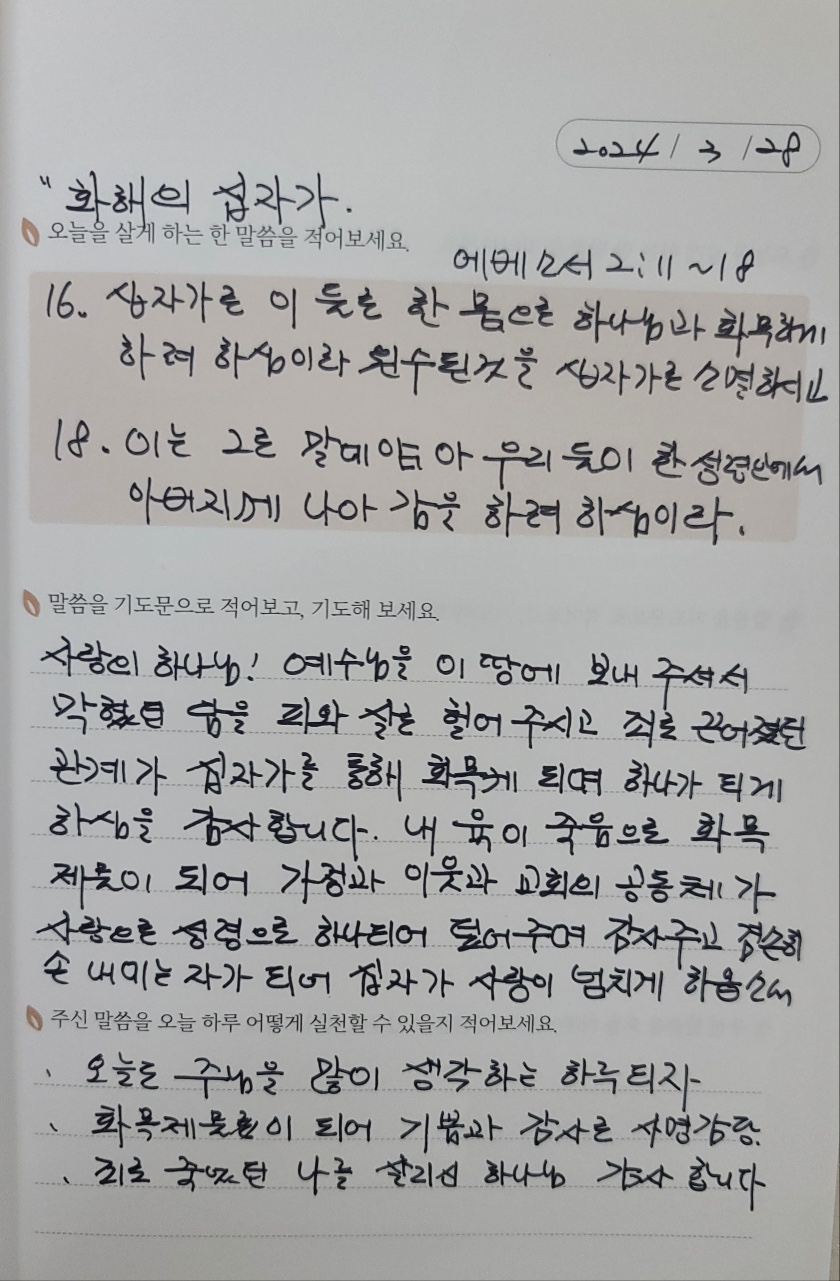 2024 / 3 / 28
"화해의 십자가.
오늘을 살게 하는 한 말씀을 적어보세요.
에베소서 2:11~18
16. 십자가로 이 둘로 한 몸으로 하나님과 화목하게
하려 하심이라 원수된것을 십자가로 소멸하시고
18. 이는 그로 말미암아 우리 둘이 한 성령안에서
아버지께 나아 감을 하려 하심이라.
말씀을 기도문으로 적어보고, 기도해 보세요.
사랑의 하나님! 예수님을 이 땅에 보내 주셔서
막혔던 담을 피와 살로 헐어 주시고 죄로 끈어졌던
관계가 십자가를 통해 화목케 되며 하나가 되게
하심을 감사합니다. 내 육이 죽음으로 화목
제물이 되어 가정과 이웃과 교회의 공동체가
사랑으로 성령으로 하나되어 덜어주며 감싸주고 겸손히
손 내미는 자가 되어 십자가 사랑이 넘치게 하옵소서
주신 말씀을 오늘 하루 어떻게 실천할 수 있을지 적어보세요.
· 오늘도 주님을 많이 생각하는 하루되자
· 화목제물이 되어 기쁨과 감사로 사명감당.
· 죄로 죽었던 나를 살리신 하나님 감사 합니다